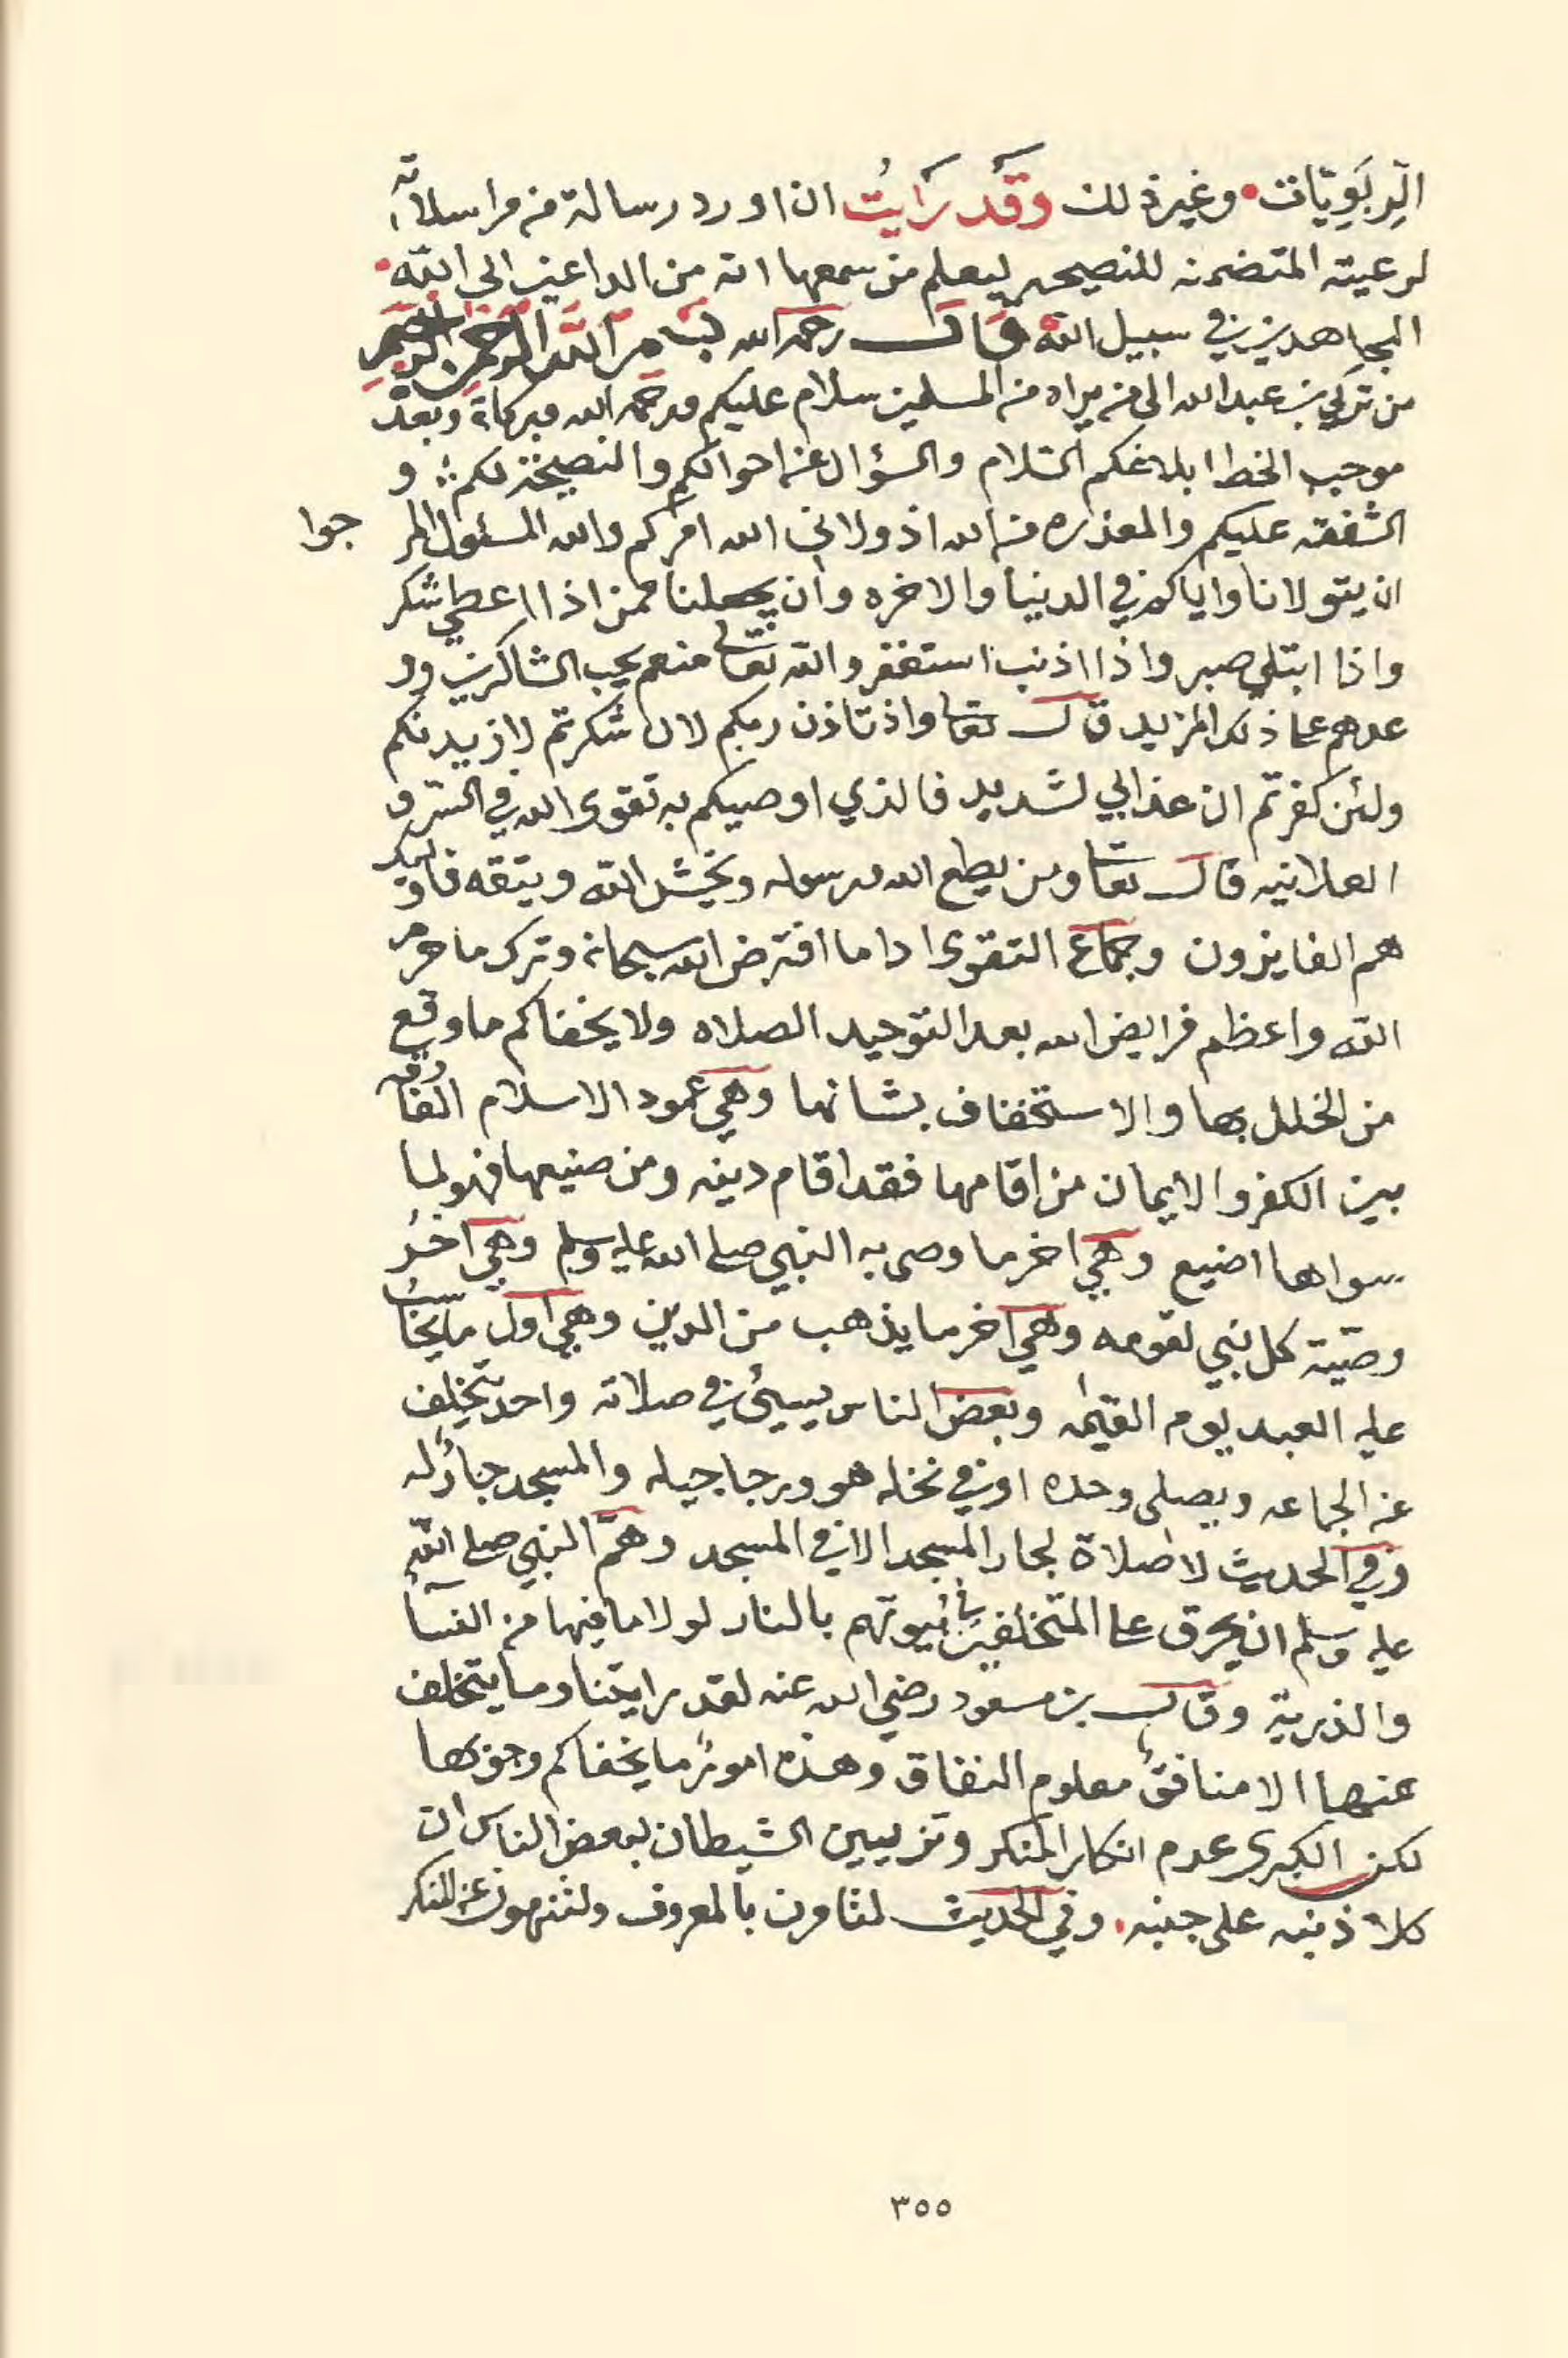 الرِّبَوِيّات • وغير ذلك وقد رَايتُ ان اورد رسالة من مراسلاته
لرعيته المتضمنه للنصيحه ليعلم من سمعها انه من الداعين الى الله •
المجاهدين في سبيل الله قال رحمه الله بسم الله الرحمن الرحيم
من تركي بن عبد الله الى من يراه من المسلمين سلام عليكم ورحمه الله وبركاته وبعد
موجب الخط ابلاغكم السلام والسؤال عن احوالكم والنصيحة لكم و
الشفقه عليكم والمعذره من الله اذ ولاني الله امركم والله المسئول المر جوا
ان يتولانا واياكم في الدنيا والاخره وان يجعلنا ممن اذا اعطي شكر
واذا ابتلي صبر واذا اذنب استغفر والله تعالى منعم يحب الشاكرين وو
عدهم على ذلك المزيد قال تعالى واذ تاذن ربكم لان شكرتم لازيدنكم
ولئن كفرتم ان عذابي لشديد فالذي اوصيكم به تقوى الله في السر و
العلانيه قال تعالى ومن يطع الله ورسوله ويخش الله ويتقه فاولئك
هم الفايزون وجماع التقوى ادا ما افترض الله سبحانه وترك ما حرم
الله واعظم فرايض الله بعد التوحيد الصلاه ولا يخفاكم ما وقع
من الخلل بها والاستخفاف بشانها وهي عمود الاسلام الفارقه
بين الكفر والايمان من اقامها فقد اقام دينه ومن ضيعها فهو لما
سواها اضيع وهي اخر ما وصى به النبي صلى الله عليه وسلم وهي اخر
وصيّة كل نبي لقومه وهي اخر ما يذهب من الدين وهي اول ما يحاسب
عليه العبد يوم القيمه وبعض الناس يسيئ في صلاته واحد يتخلف
عن الجماعه ويصلي وحده او في نخله هو ورجاجيله والمسجد جبارٌ له
وفي الحديث لا صلاة لجار المسجد الا في المسجد وهمّ النبي صلى الله
عليه وسلم ان يحرق على المتخلفين في بيوتهم بالنار لولا ما فيها من النسا
والذرية وقال بن مسعود رضي الله عنه لقد رايتنا وما يتخلف
عنها الا منافق معلوم النفاق وهذه امور ما يخفاكم وجوبها
لكن الكبرى عدم انكار المنكر وتزيين الشيطان لبعض الناس ان
كلا ذنبه على جنبه • وفي الحديث لتامرن بالمعروف ولتنهون عن المنكر
٣٥٥